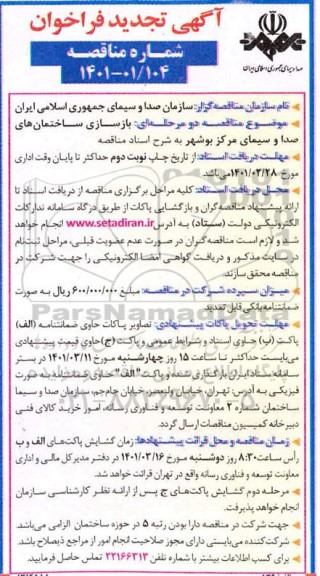 آگهی تجدید فراخوان
شماره مناقصه
۱۴۰۱-۰۱/۱۰۴
صدا و سیمای جمهوری اسلامی ایران
نام سازمان مناقصه‌گزار: سازمان صدا و سیمای جمهوری اسلامی ایران
موضوع مناقصه دو مرحله‌ای: بازسازی ساختمان‌های
صدا و سیمای مرکز بوشهر به شرح اسناد مناقصه
مهلت دریافت اسناد: از تاریخ چاپ نوبت دوم حداکثر تا پایان وقت اداری
مورخ ۱۴۰۱/۰۲/۲۸ می‌باشد.
محل دریافت اسناد: کلیه مراحل برگزاری مناقصه از دریافت اسناد تا
ارائه پیشنهاد مناقصه گران و بازگشایی پاکات از طریق درگاه سامانه تدارکات
الکترونیکی دولت (ستاد) به آدرس www.setadiran.ir انجام خواهد
شد و لازم است مناقصه گران در صورت عدم عضویت قبلی، مراحل ثبت‌نام
در سایت مذکور و دریافت گواهی امضا الکترونیکی را جهت شرکت در
مناقصه محقق سازند.
میزان سپرده شرکت در مناقصه: مبلغ ۶۰۰/۰۰۰/۰۰۰ ریال به صورت
ضمانتنامه بانکی قابل تمدید
مهلت تحویل پاکات پیشنهادی: تصاویر پاکات حاوی ضمانتنامه (الف)
پاکت (ب) حاوی اسناد و شرایط عمومی و پاکت (ج) حاوی قیمت پیشنهادی
می‌بایست حداکثر تا ساعت ۱۵ روز چهارشنبه مورخ ۱۴۰۱/۰۳/۱۱ در بستر
سامانه ستاد ایران بارگذاری شده و پاکت "الف" حاوی ضمانتنامه به صورت
فیزیکی به آدرس: تهران، خیابان ولیعصر، خیابان جام‌جم، سازمان صدا و سیما
ساختمان شماره ۳ معاونت توسعه و فناوری رسانه، امور خرید کالای فنی
دبیرخانه کمیسیون مناقصات ارسال گردد.
زمان مناقصه و محل قرائت پیشنهادها: زمان گشایش پاکت‌های الف و ب
رأس ساعت ۸:۳۰ روز دوشنبه مورخ ۱۴۰۱/۰۳/۱۶ در دفتر مدیرکل مالی و اداری
معاونت توسعه و فناوری رسانه واقع در تهران قرائت خواهد شد.
مرحله دوم گشایش پاکت‌های ج پس از ارائه نظر کارشناسی سازمان
انجام خواهد پذیرفت.
جهت شرکت در مناقصه دارا بودن رتبه ۵ در حوزه ساختمان الزامی می‌باشد.
شرکت‌کننده می‌بایستی دارای مجوز صلاحیت انجام امور از مراجع ذیصلاح باشد
برای کسب اطلاعات بیشتر با شماره تلفن ۲۲۱۶۶۳۱۳ تماس حاصل فرمایید.